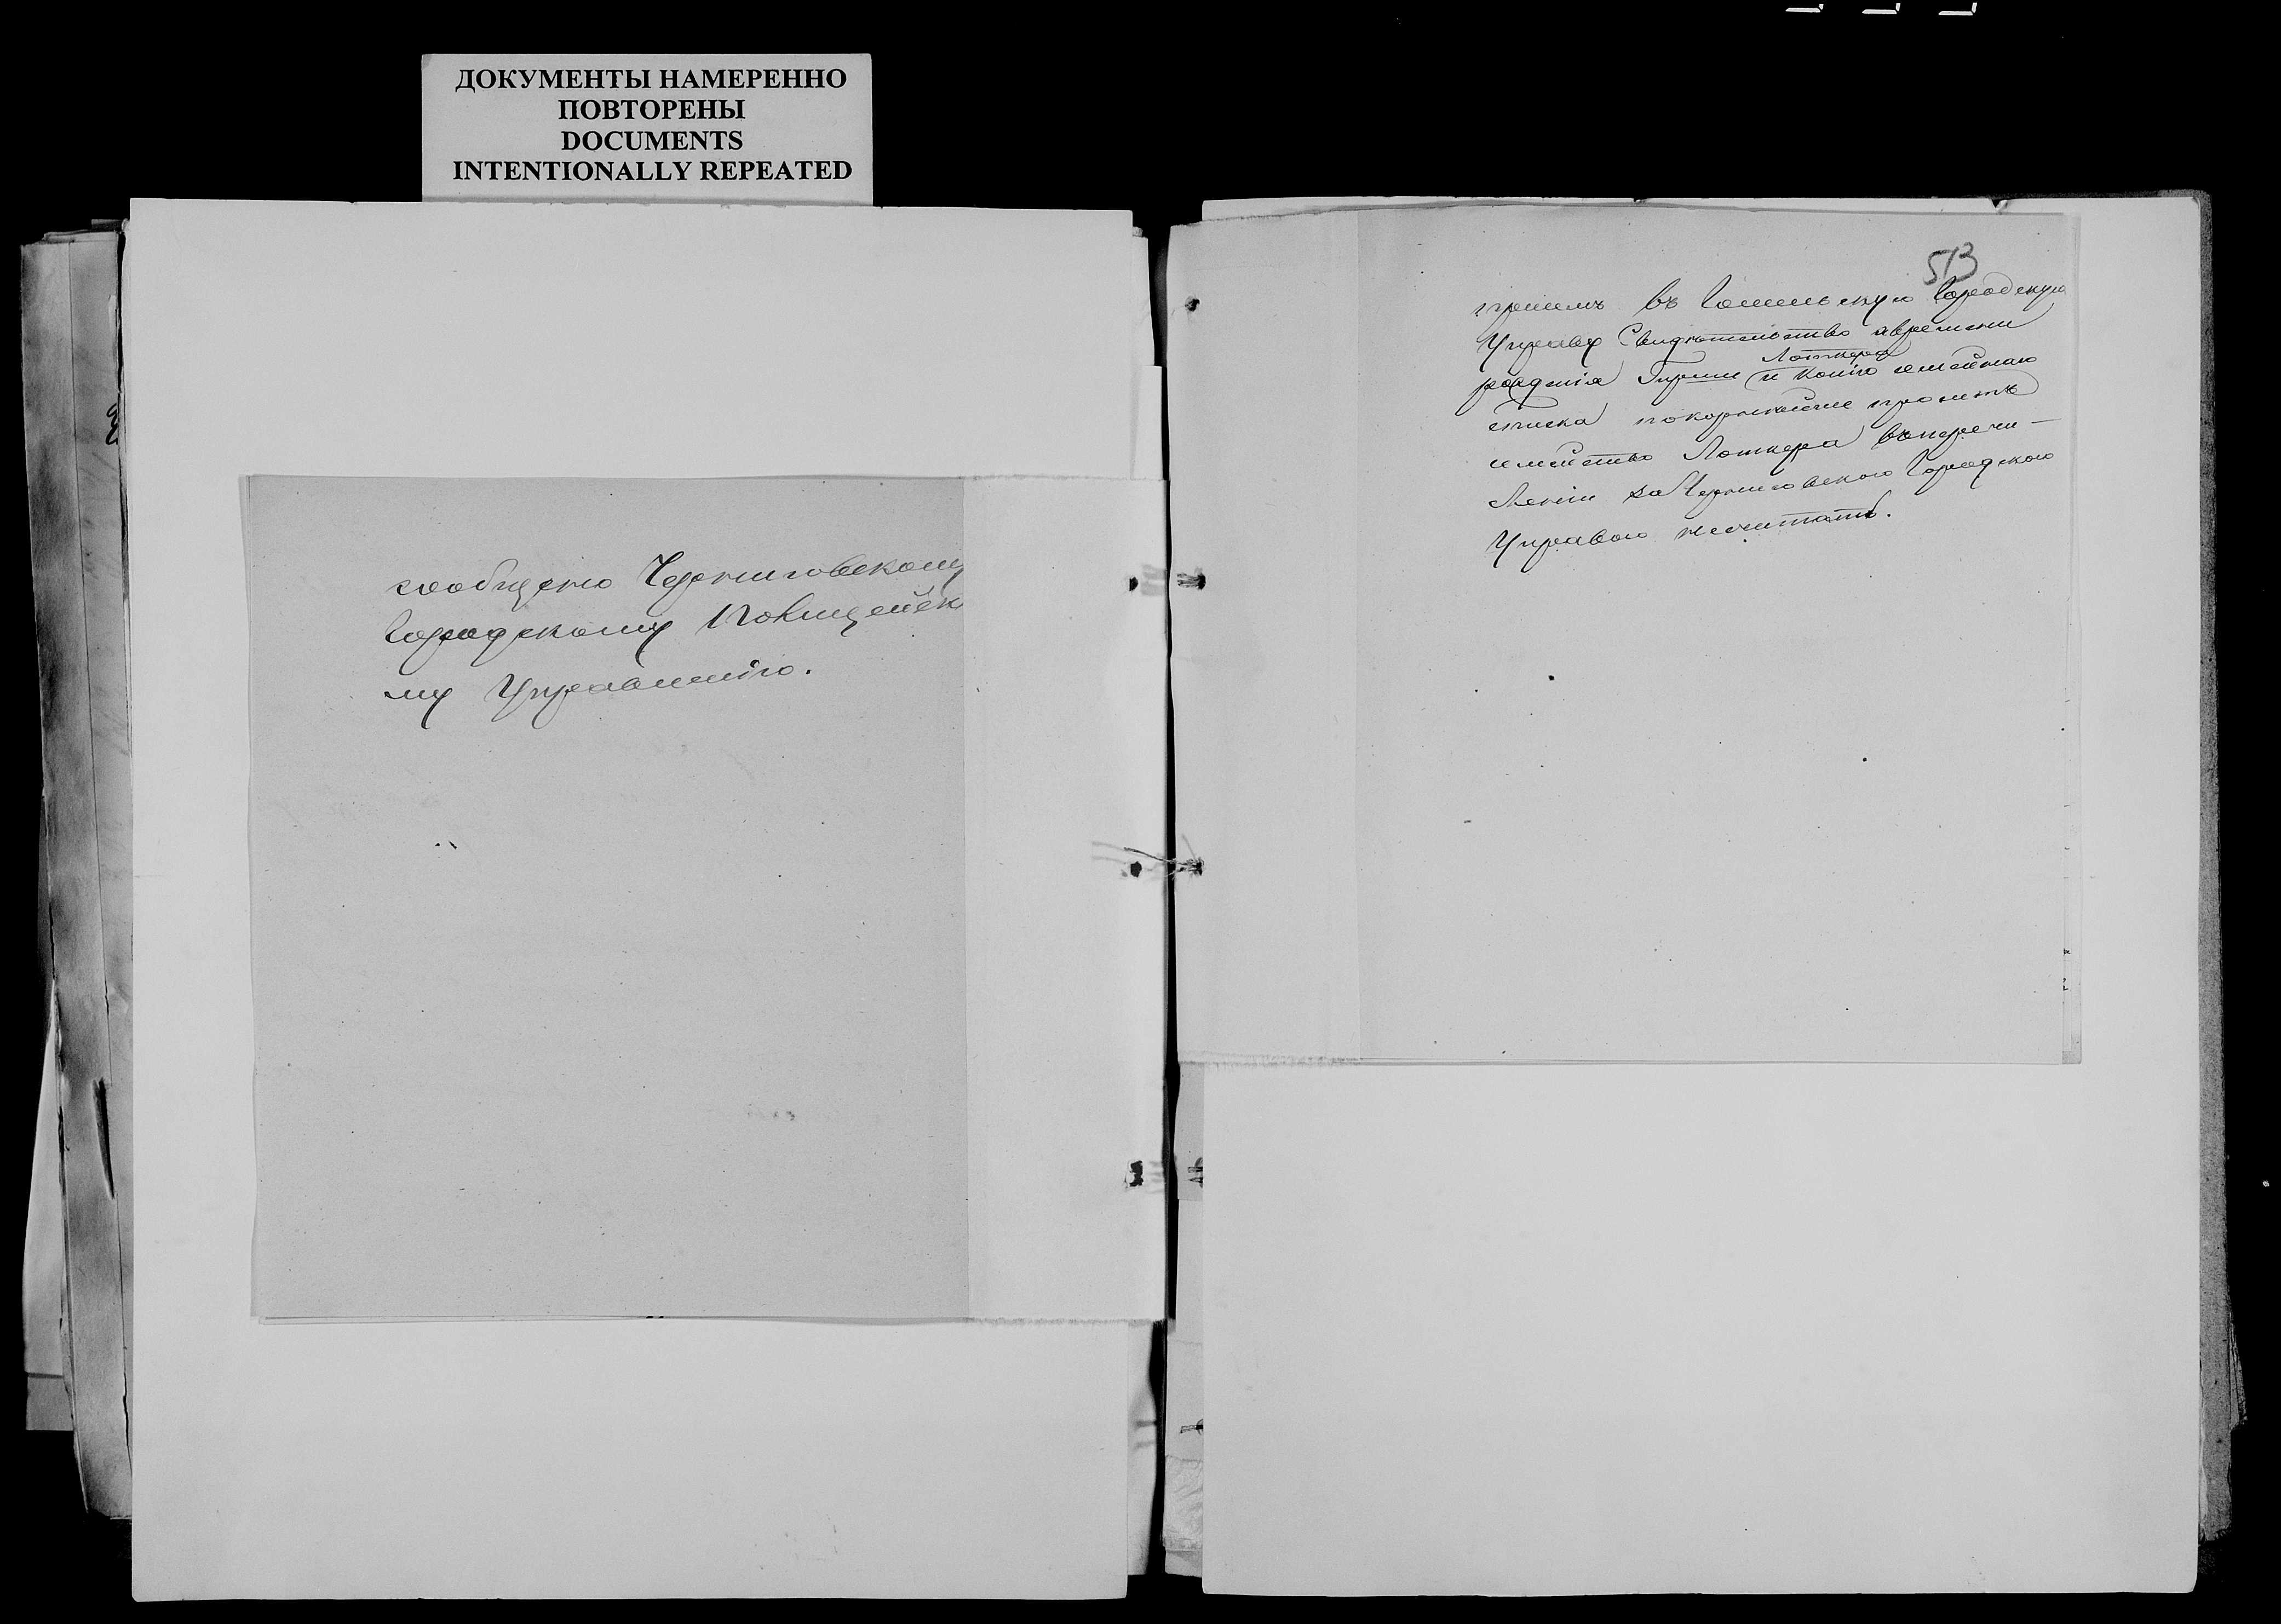 ДОКУМЕНТЫ НАМЕРЕННО
ПОВТОРЕНЫ
DOCUMENTS
INTENTIONALLY REPEATED
сообщено Черниговскому
Городскому Полицейск
му Управленію.
513
при семъ въ Гомельскую Городскую
Управу Свидѣтельство о времени
Лоткера
рожденія и копію семейнаго
списка покорнѣйше проситъ
семейство Лоткера въ перечи-
сленіи за Черниговскою Городскою
Управою не считать.